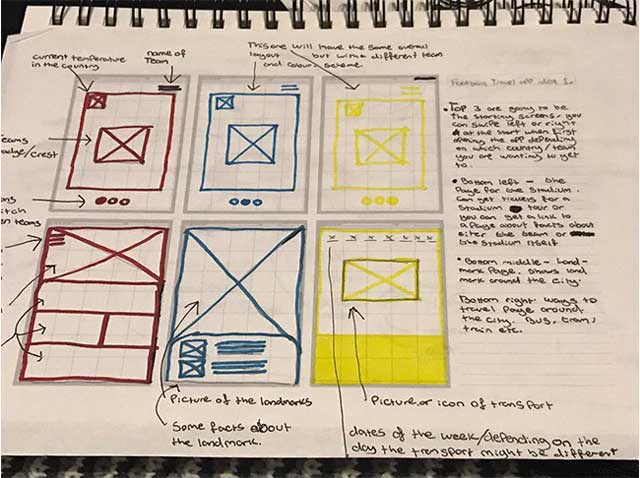 current temperature
in the country
name of
Team
This one will have the same overall
layout but with a different team
and colour scheme.
Football Travel app idea 1.
eams
adge/crest
ns
itch
n teams
• Top 3 are going to be
the starting screens, you
can swipe left or right
at the start when first
opening the app depending
on which country/team
you are wanting to get
to.
• Bottom left - the
Page for the Stadium.
Can get tickets for a
Stadium tour or
you can get a link to
a Page about facts about
either the team or
the Stadium itself
• Bottom middle - Land-
mark Page. Shows land
mark around the City.
Bottom right ways to
travel Page around
the City. Bus, tram,
train etc.
Picture of the landmarks
Some facts about
the landmark.
Picture or icon of transport
dates of the week/depending on the
day the transport might be different